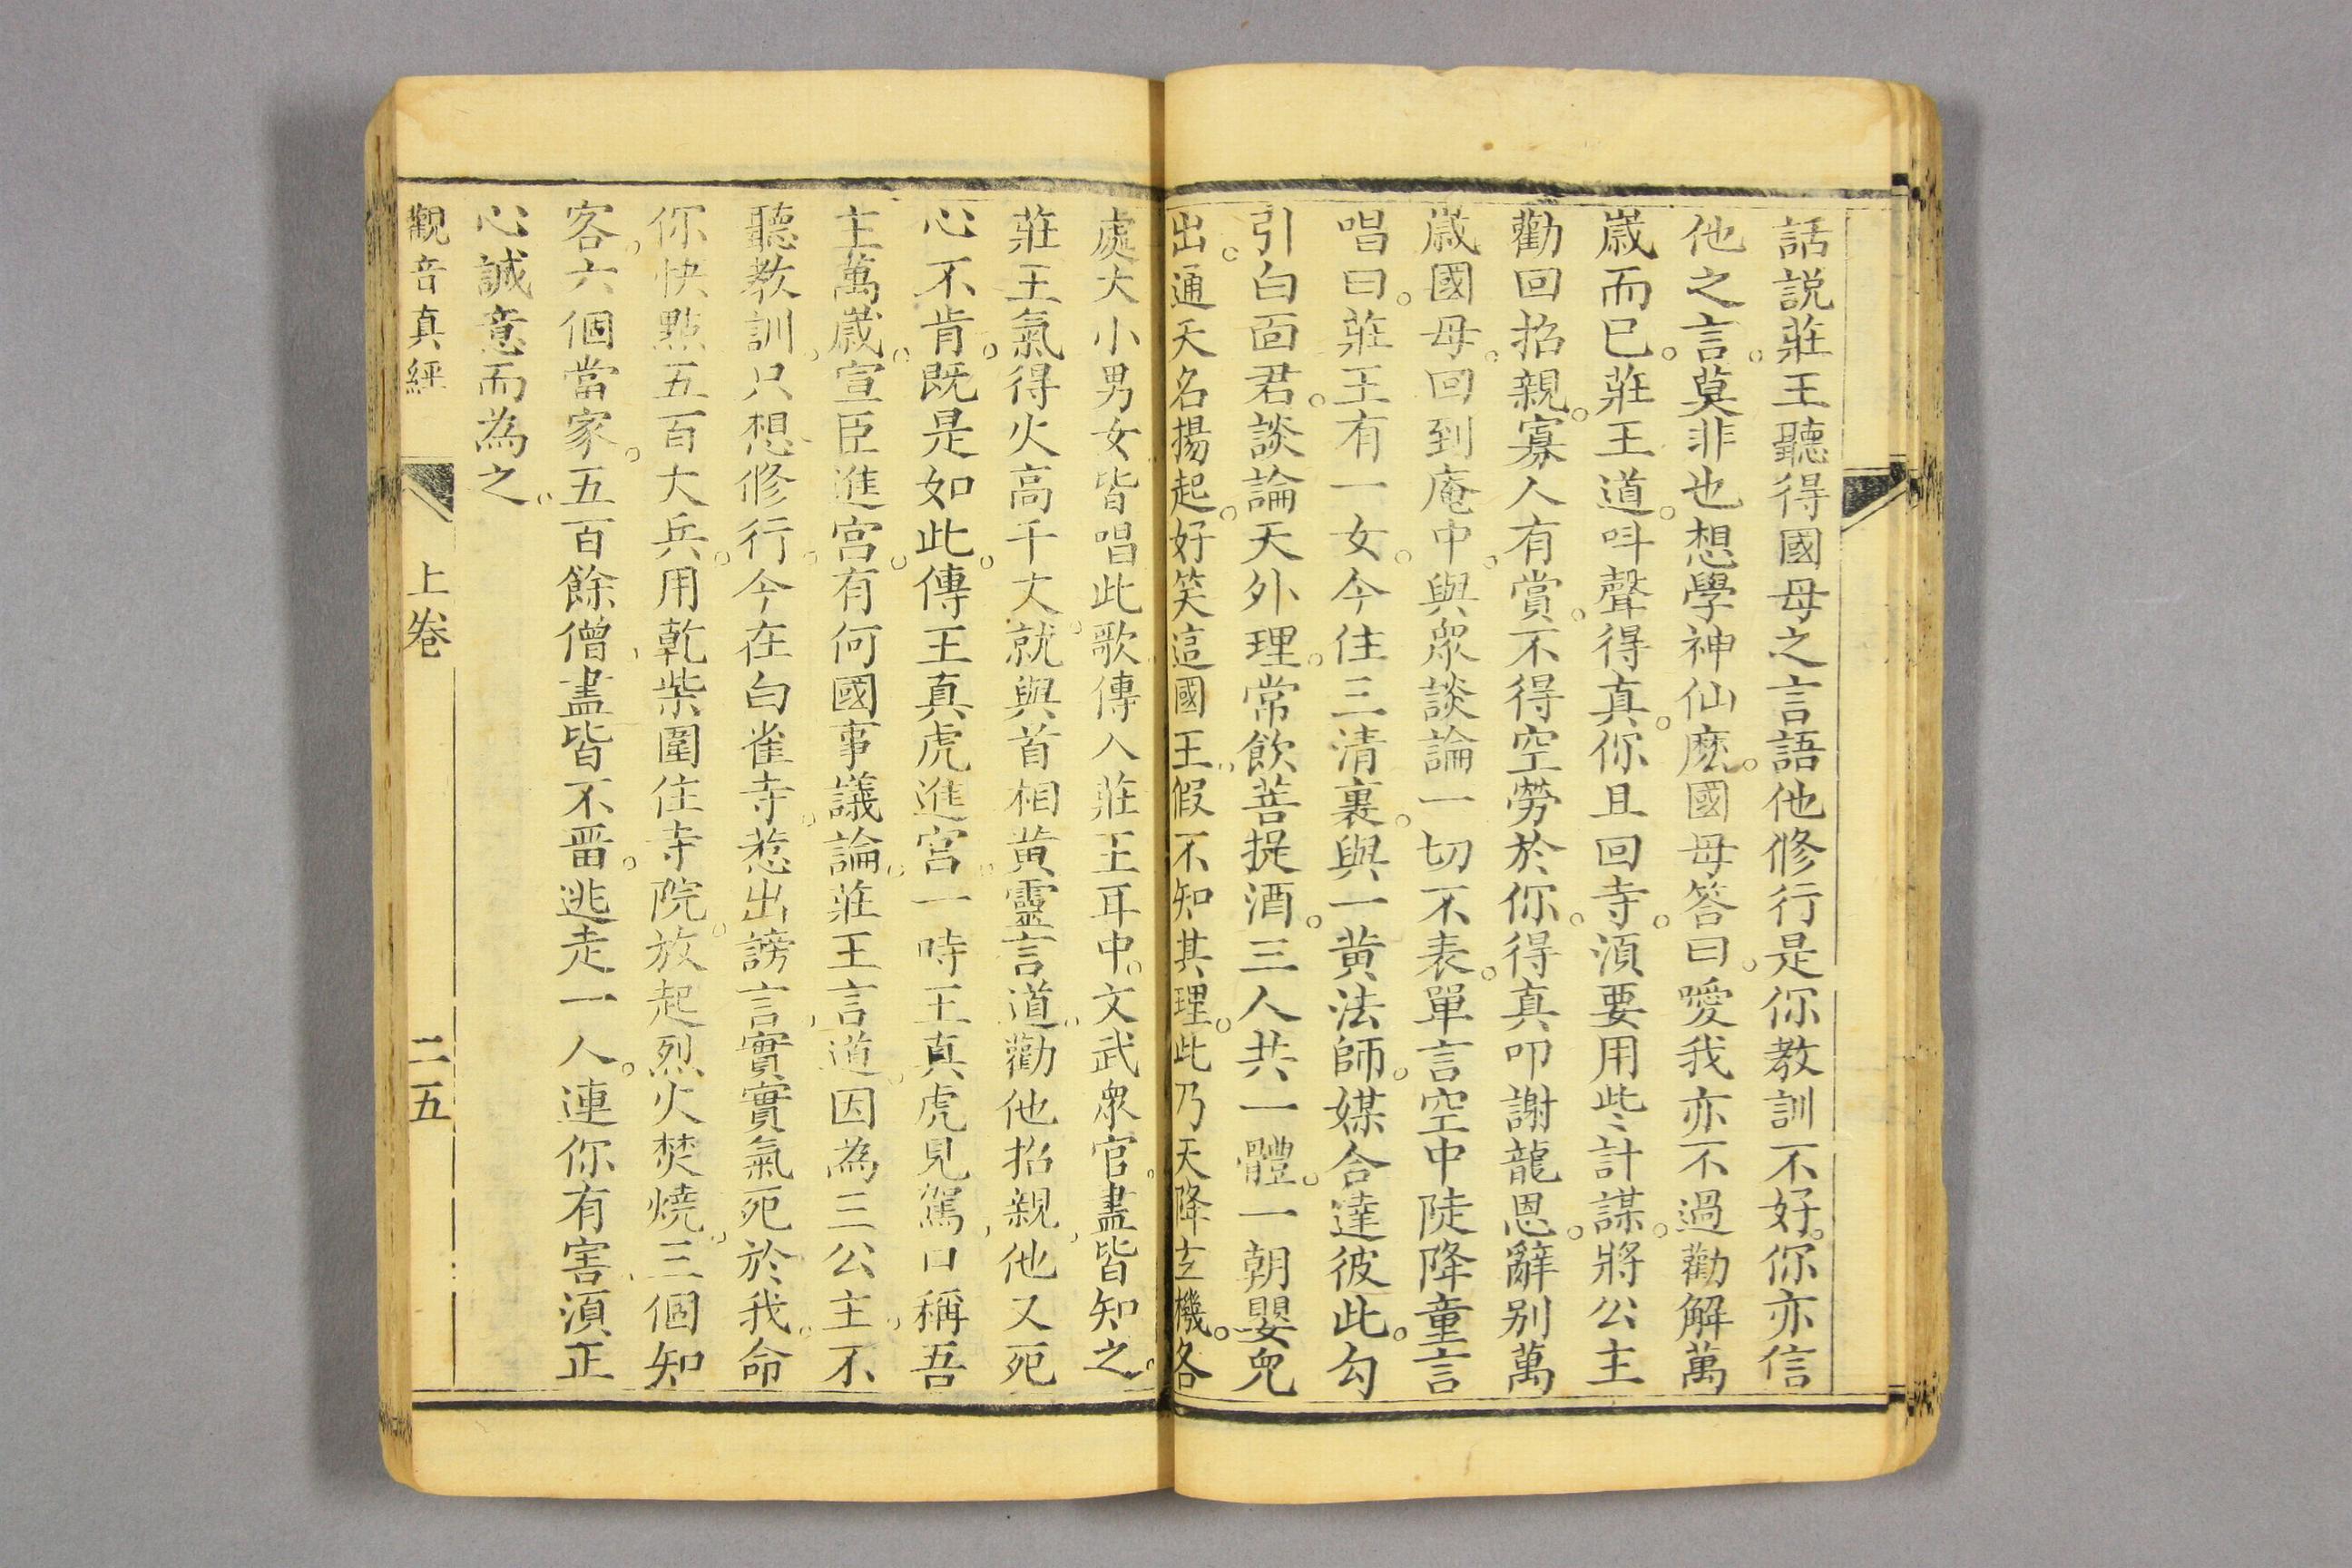 話説莊王聽得國母之言語他修行是你教訓不好。你亦信
他之言。莫非也想學神仙麽。國母答曰。噯我亦不過勸解萬
嵗而已。莊王道。呌聲得真。你且回寺。湏要用些計謀。將公主
勸回招親。寡人有賞。不得空勞於你。得真叩謝龍恩。辭别萬
嵗國母。回到庵中。與衆談論一切不表。單言空中陡降童言
唱曰。莊王有一女。今住三清裏。與一黄法師。媒合達彼此。勾
引白面君。談論天外理。常飲菩提酒。三人共一體。一朝嬰兒
出。通天名揚起。好笑這國王。假不知其理。此乃天降玄機。各
處大小男女皆唱此歌。傳入莊王耳中。文武衆官。盡皆知之。
莊王氣得火高千丈。就與首相黄靈言道。勸他招親。他又死
心不肯。既是如此。傳王真虎進宫。一時王真虎見駕。口稱吾
主萬嵗。宣臣進宫。有何國事議論。莊王言道。因為三公主。不
聽教訓。只想修行。今在白雀寺。惹出謗言。實實氣死於我。命
你快點五百大兵。用乾柴圍住寺院。放起烈火焚燒。三個知
客。六個當家。五百餘僧。盡皆不畱。逃走一人。連你有害。湏正
心誠意而為之。
觀音真經 上卷 二五